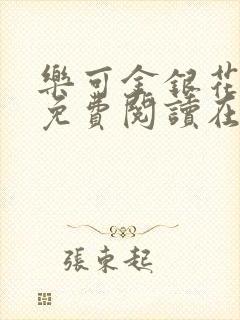 樂可金銀花
免費閱讀在
張東起